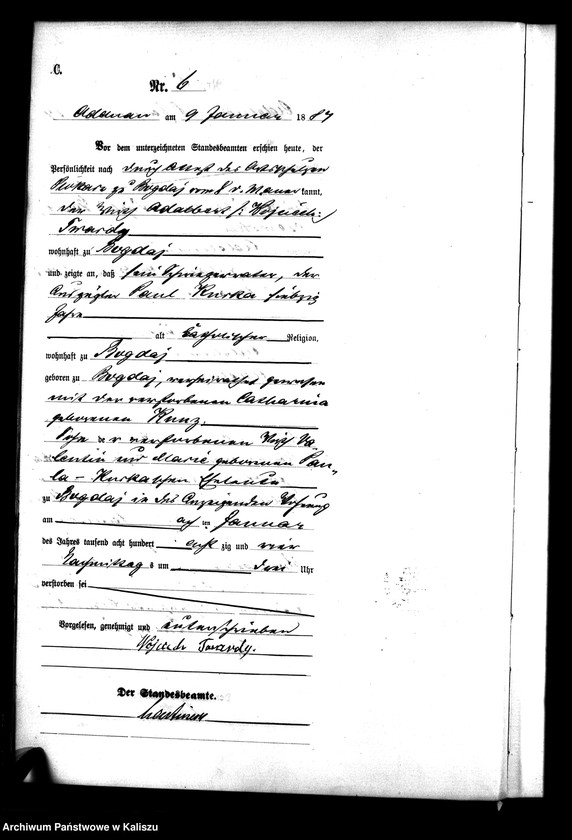 C.
Nr. 6
Adelnau am 9 Januar 1884
Vor dem unterzeichneten Standesbeamten erschien heute, der
Persönlichkeit nach durch Attest des
zu Bogdaj kannt,
der Wirth Adalbert /: Wojciech :/
Twardy
wohnhaft zu Bogdaj
und zeigte an, daß sein Schwiegervater, der
Auszügler Paul Kurka siebzig
Jahre
alt katholischer Religion,
wohnhaft zu Bogdaj
geboren zu Bogdaj, verheirathet gewesen
mit der verstorbenen Catharina
geborenen Kunz.
Sohn der verstorbenen Wirth Va-
lentin und Marie geborenen
Kurkaschen Eheleute
zu Bogdaj in des Anzeigenden Wohnung
am acht ten Januar
des Jahres tausend acht hundert acht zig und vier
Nachmittag s um drei Uhr
verstorben sei
Vorgelesen, genehmigt und unterschrieben
Wojciech Twardy.
Der Standesbeamte.
Archiwum Państwowe w Kaliszu